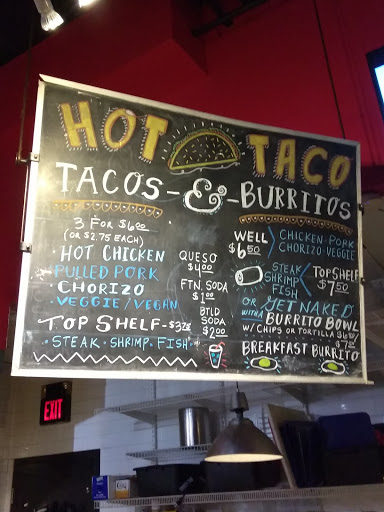 HOT TACO
TACOS - & - BURRITOS
3 FOR $6.00
(OR $2.75 EACH)
• HOT CHICKEN
• PULLED PORK
• CHORIZO
• VEGGIE/VEGAN
TOP SHELF - $3.75
• STEAK • SHRIMP • FISH •
QUESO
$4.00
FTN. SODA
$1.00
BTLD
SODA
$2.00
WELL
$6.50
CHICKEN • PORK
CHORIZO • VEGGIE
STEAK
SHRIMP
FISH
TOP SHELF
$7.50
OR GET NAKED
WITH A BURRITO BOWL
W/ CHIPS OR TORTILLA
BREAKFAST BURRITO
EXIT